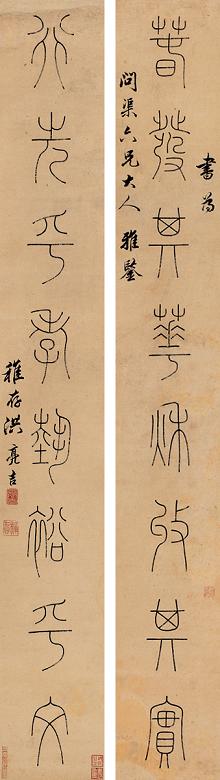 書為
萅發其華秋收其實
問渠六兄大人 雅鑒
行先乎孝埶裕乎文
稚存洪亮吉